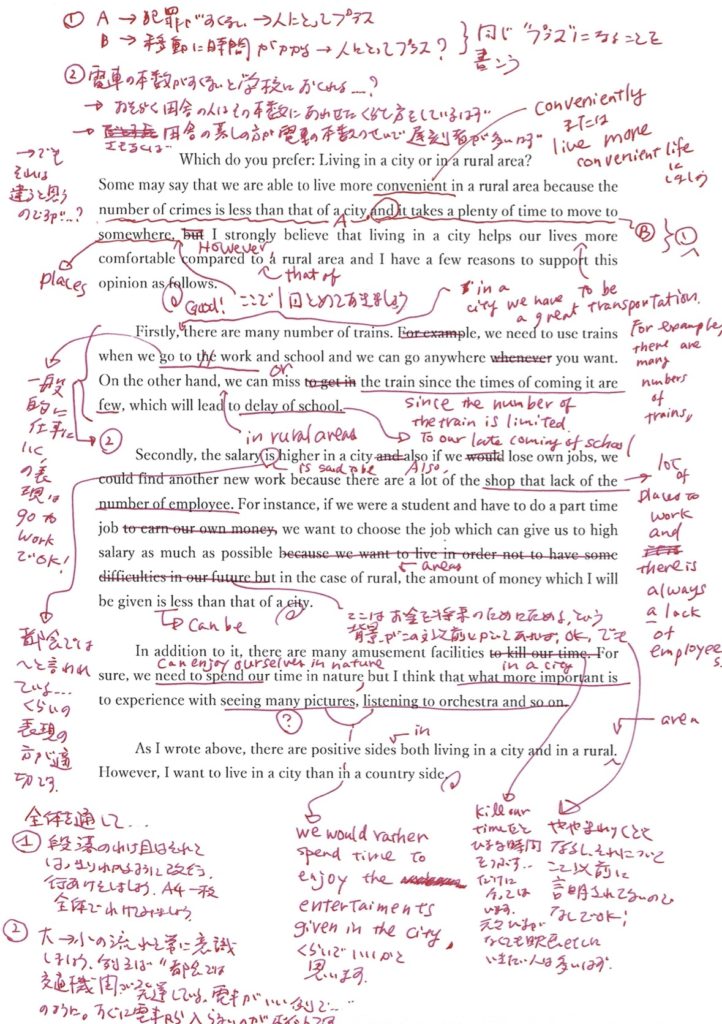 ① A → 犯罪がすくない → 人にとってプラス
B → 移動に時間がかかる → 人にとってプラス?
同じ"プラス"になることを
書こう
② 電車の本数がすくないと学校におくれる...?
→ おそらく田舎の人はその本数にあわせたくらし方をしているはず
田舎の暮しの方が電車の本数のせいで遅刻者が多いはず
conveniently
または
live more
convenient life
にしよう
→ でも
それは
違うと思う
のですが...?
Which do you prefer: Living in a city or in a rural area?
Some may say that we are able to live more convenient in a rural area because the
number of crimes is less than that of a city and it takes a plenty of time to move to
A
Ⓑ
①
somewhere, but I strongly believe that living in a city helps our lives more
However
places
comfortable compared to a rural area and I have a few reasons to support this
that of
to be
opinion as follows.
Good! ここで1回とめておきましょう
in a
city we have a great transportation.
Firstly, there are many number of trains. For example, we need to use trains
For example,
there are
many
numbers
of
trains,
when we go to the work and school and we can go anywhere whenever you want.
or
On the other hand, we can miss to get in the train since the times of coming it are
few, which will lead to delay of school.
since the number of
the train is limited.
in rural areas
To our late coming of school
②
一般
的に
仕事に
いく
の表
現は
go to
work
でOK!
Secondly, the salary is higher in a city and also if we would lose own jobs, we
is said to be
Also,
could find another new work because there are a lot of the shop that lack of the
lot
of
places to
work
and
there is
always
a lack
of
employee
s.
number of employee. For instance, if we were a student and have to do a part time
job to earn our own money, we want to choose the job which can give us to high
salary as much as possible because we want to live in order not to have some
difficulties in our future but in the case of rural, the amount of money which I will
areas
be given is less than that of a city.
can be
都会では
〜と言われ
ている...
くらいの
表現の
方が適
切です
In addition to it, there are many amusement facilities to kill our time. For
can enjoy ourselves in nature
in a city
sure, we need to spend our time in nature but I think that what more important is
to experience with seeing many pictures, listening to orchestra and so on.
?
area
As I wrote above, there are positive sides both living in a city and in a rural.
in
However, I want to live in a city than in a country side.
we would rather
spend time to
enjoy the
entertaiments
given in the city,
くらいでいいかと
思います。
kill our
timeだと
ひまな時間
をつぶす..
全体を通して...
① 段落のわけ目はそれと
はっきりわかるように改行、
行あけをしましょう。A4一枚
全体でわけてみましょう
② 大→小の流れを常に意識
しましょう。例えば"都会では
交通機関が発達している。電車がいい例で..."